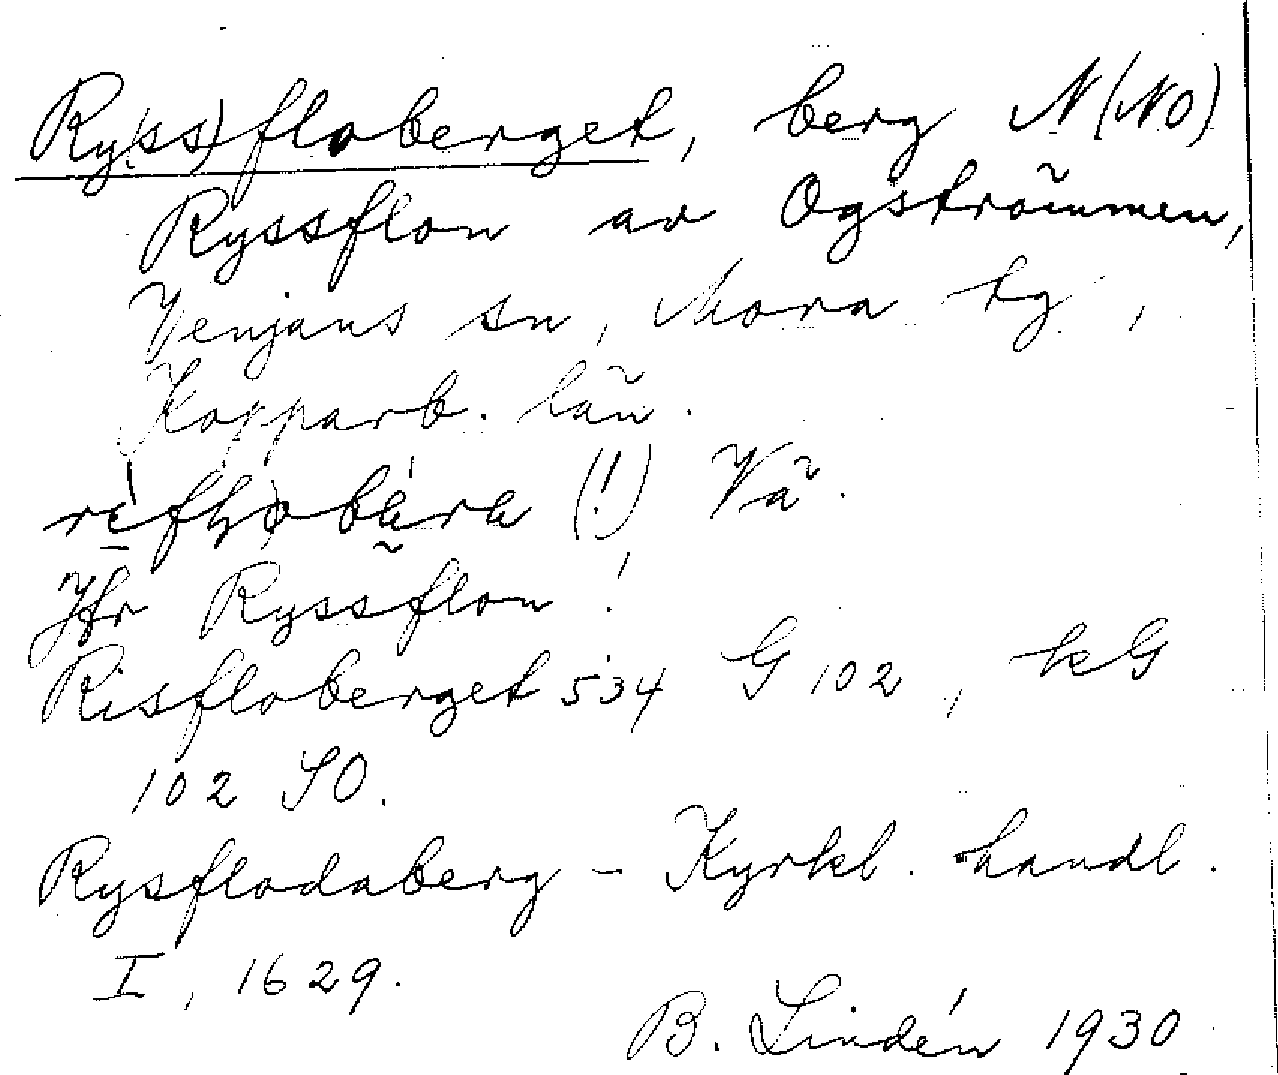 Ry(ss)floberget, berg N (NO)
Ryssflon av Ogströmmen,
Venjans sn, Mora tg,
Kopparb. län.
(!) Vä.
Jfr Ryssflon!
Risfloberget 534 G 102, kG
102 SO.
Rysflodaberg - Kyrkl. handl.
I, 1629.
B. Lindén 1930